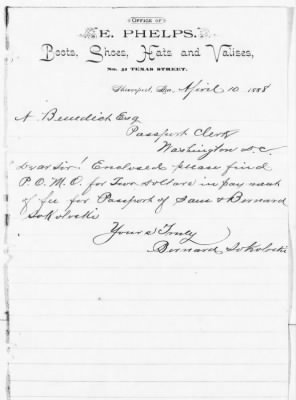 OFFICE OF
E. PHELPS.
Boots, Shoes, Hats and Valises,
No. 41 TEXAS STREET.
Shreveport, La., April 10 1888
N. Benedict Esq
Passport Clerk
Washington D.C.
Dear Sir! Enclosed please find
P.O.M.O. for Two dollars in payment
of fee for Passport of Sam & Bernard
Sokoloski
Yours Truly
Bernard Sokolski